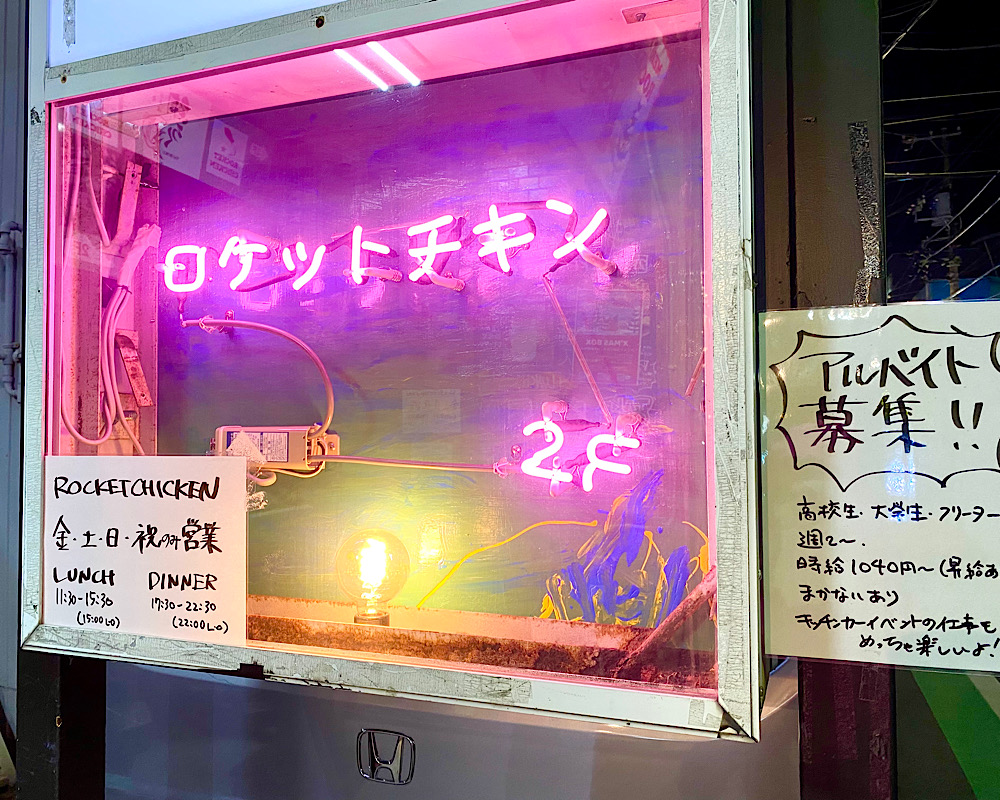 ロケットチキン
2F
ROCKETCHICKEN
金・土・日・祝のみ営業
LUNCH
11:30-15:30
(15:00 L.O)
DINNER
17:30-22:30
(22:00 L.O)
アルバイト
募集!!
高校生・大学生・フリーター
週2〜.
時給1040円〜(昇給あ
まかないあり
キッチンカーイベントの仕事も
めっちゃ楽しいよ!
ROCKET
CHICKEN
X'MAS BOX